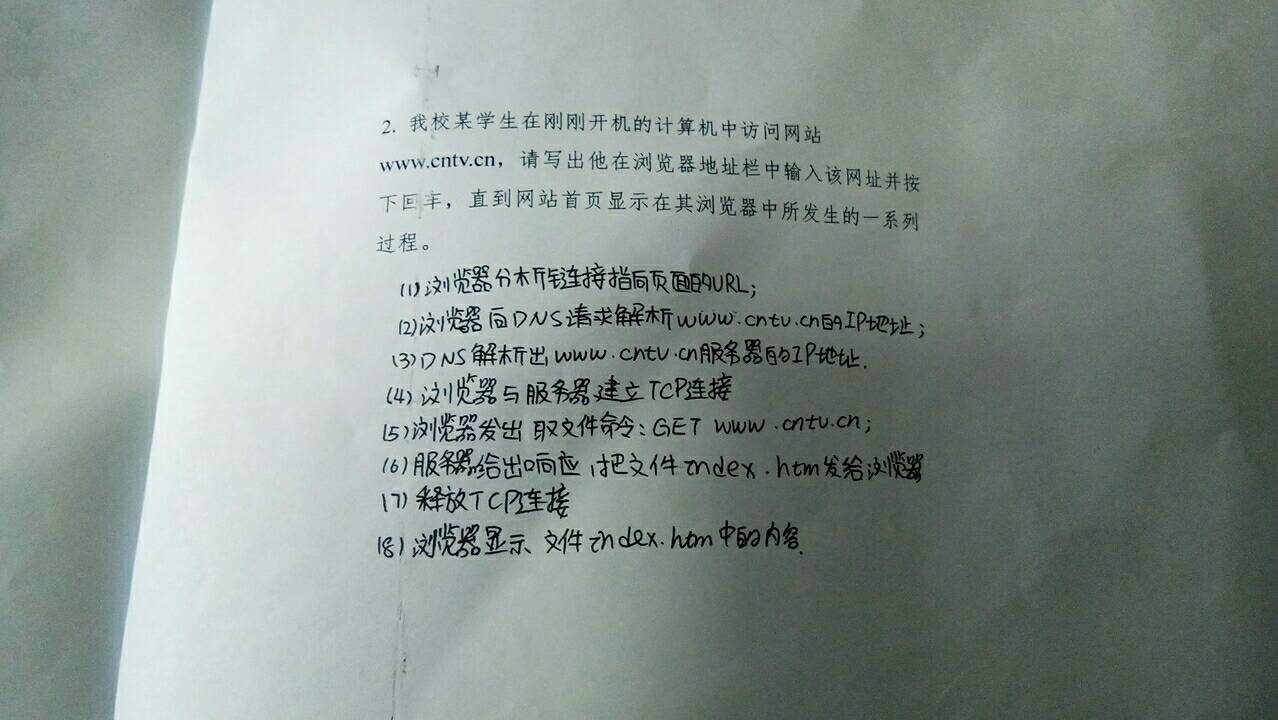 2. 我校某学生在刚刚开机的计算机中访问网站
www.cntv.cn，请写出他在浏览器地址栏中输入该网址并按
下回车，直到网站首页显示在其浏览器中所发生的一系列
过程。
(1)浏览器分析连接指向页面的URL;
(2)浏览器向DNS请求解析www.cntv.cn的IP地址;
(3)DNS解析出www.cntv.cn服务器的IP地址.
(4)浏览器与服务器建立TCP连接
(5)浏览器发出 取文件命令:GET www.cntv.cn;
(6)服务器给出响应,把文件index.htm发给浏览器
(7)释放TCP连接
(8)浏览器显示 文件index.htm中的内容.